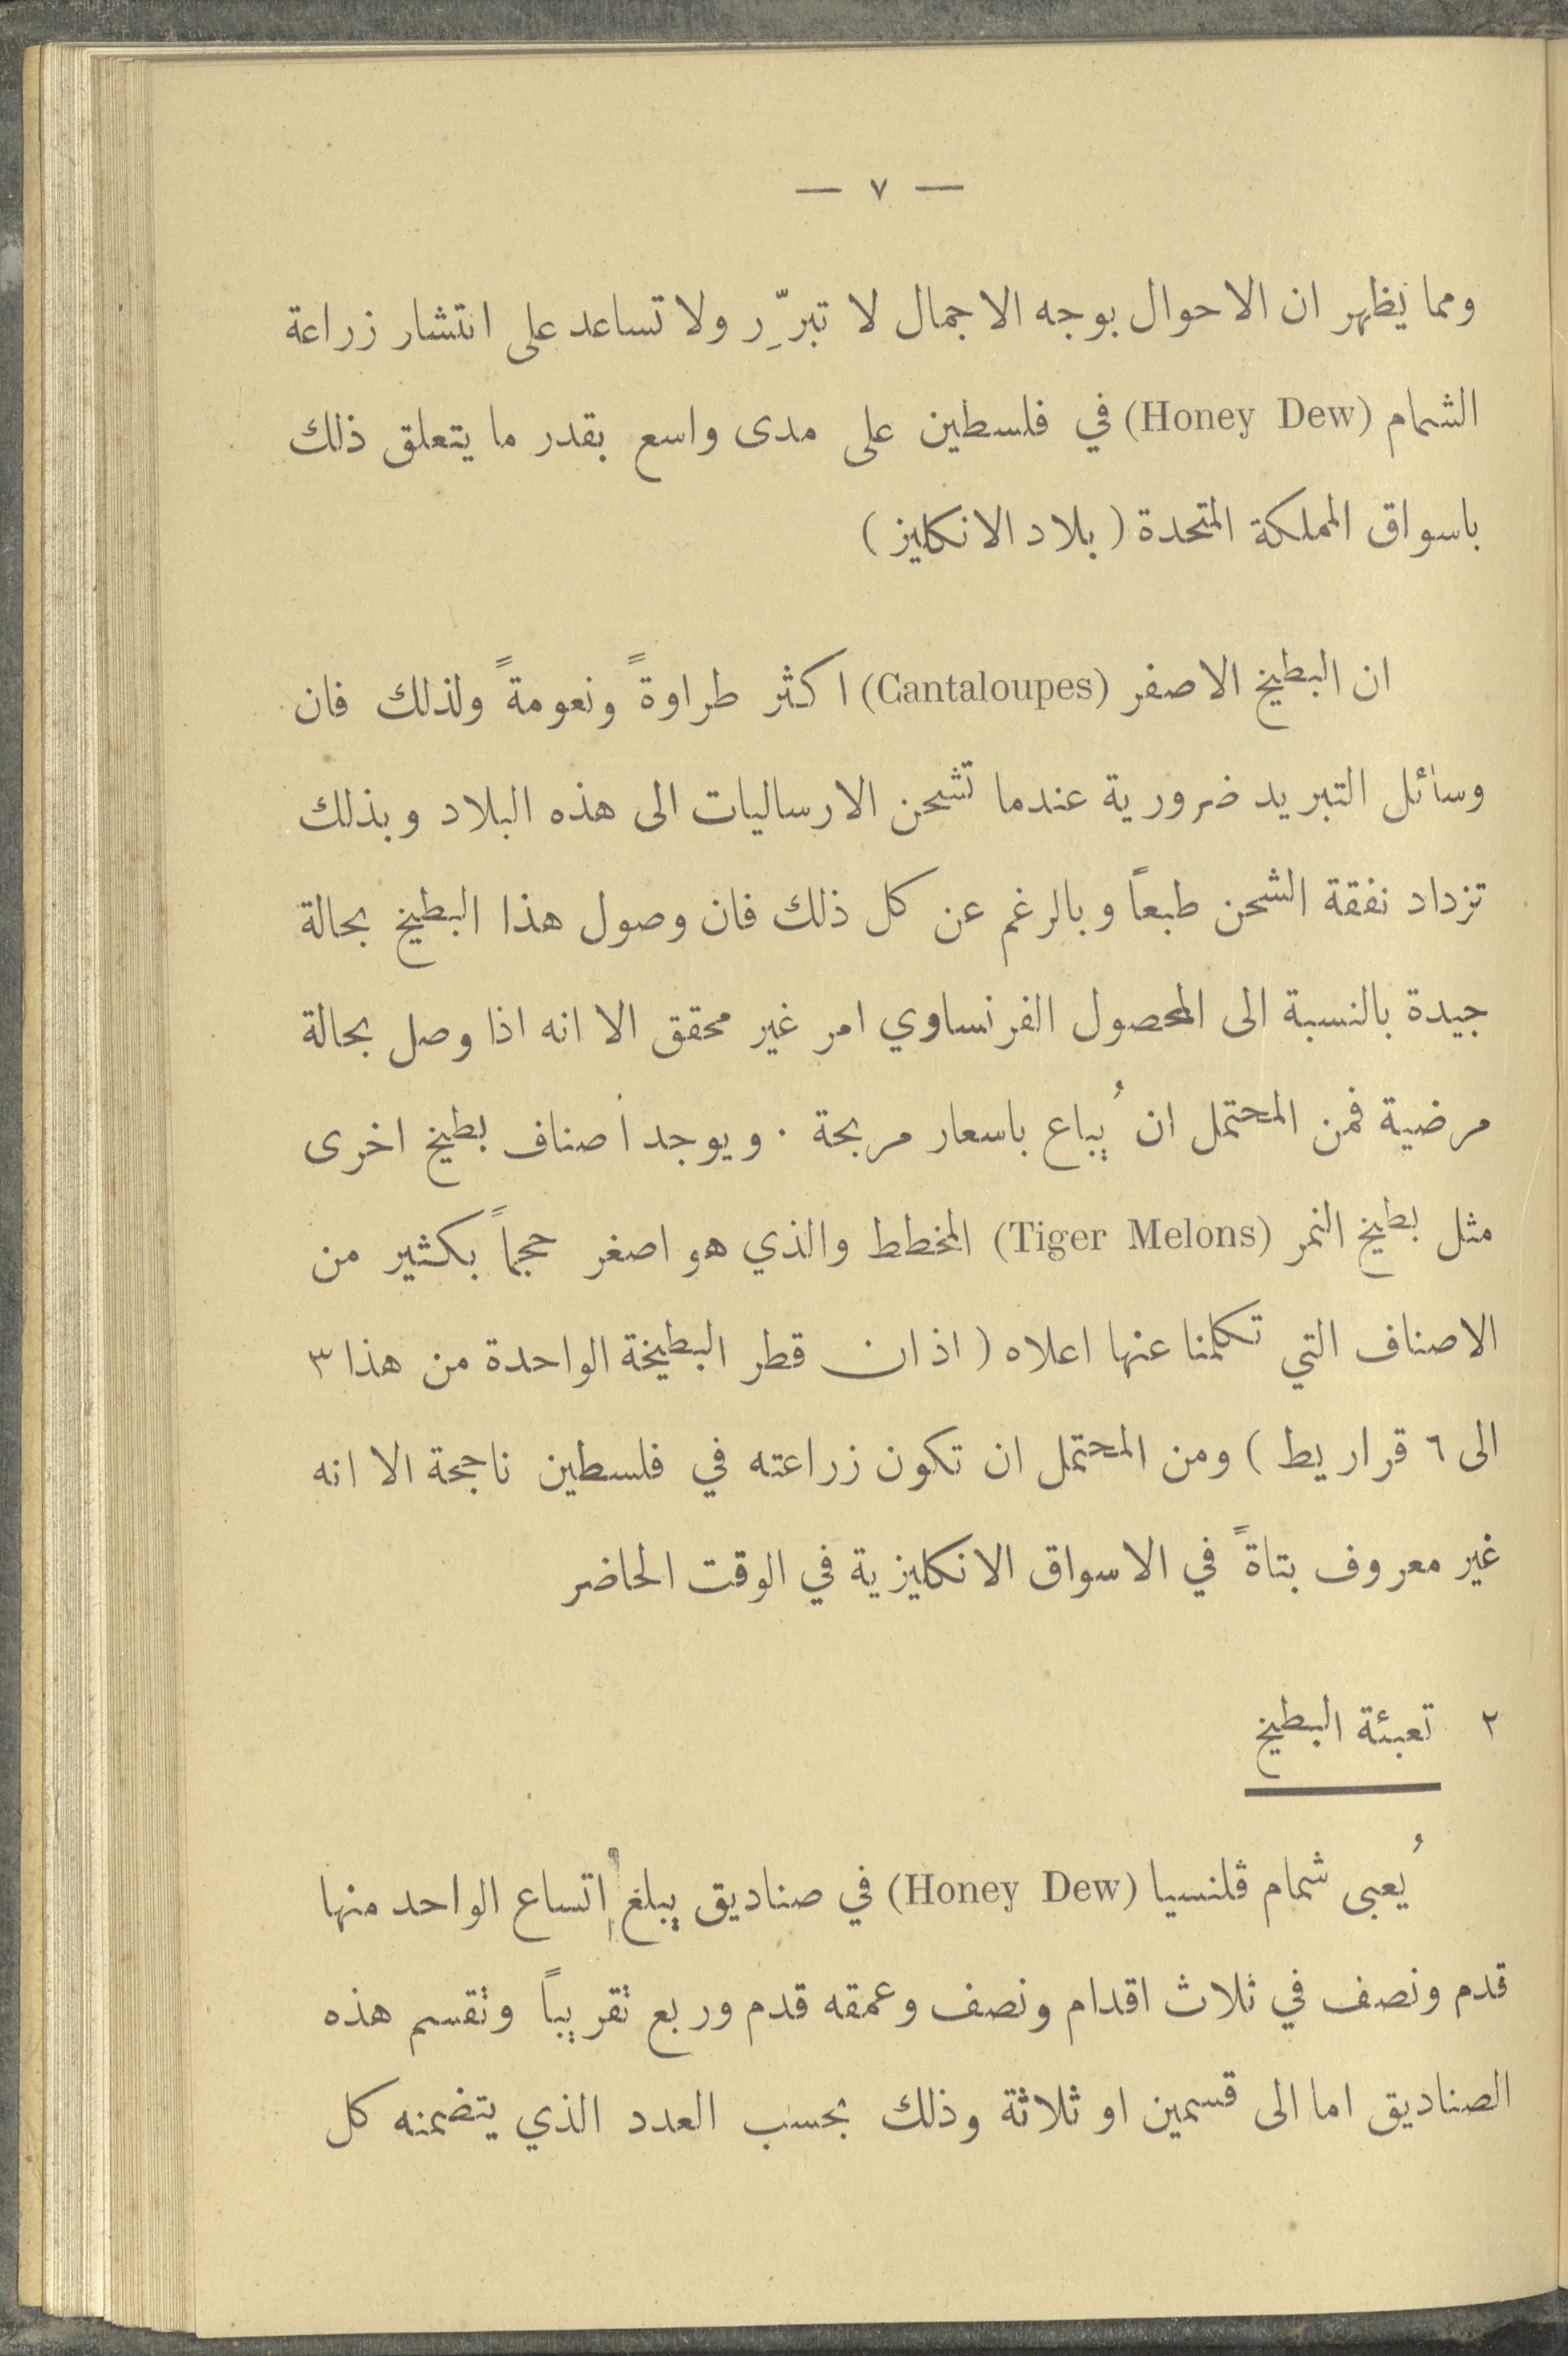 — ٧ —
ومما يُظهر ان الاحوال بوجه الاجمال لا تبرّر ولا تساعد على انتشار زراعة
الشمام (Honey Dew) في فلسطين على مدى واسع بقدر ما يتعلق ذلك
باسواق المملكة المتحدة ( بلاد الانكليز )
ان البطيخ الاصفر (Cantaloupes) اكثر طراوةً ونعومةً ولذلك فان
وسائل التبريد ضرورية عندما تشحن الارساليات الى هذه البلاد وبذلك
تزداد نفقة الشحن طبعاً وبالرغم عن كل ذلك فان وصول هذا البطيخ بحالة
جيدة بالنسبة الى المحصول الفرنساوي امر غير محقق الا انه اذا وصل بحالة
مرضية فمن المحتمل ان يُباع باسعار مربحة . ويوجد أصناف بطيخ اخرى
مثل بطيخ النمر (Tiger Melons) المخطط والذي هو اصغر حجماً بكثير من
الاصناف التي تكلمنا عنها اعلاه ( اذ ان قطر البطيخة الواحدة من هذا ٣
الى ٦ قراريط ) ومن المحتمل ان تكون زراعته في فلسطين ناجحة الا انه
غير معروف بتاةً في الاسواق الانكليزية في الوقت الحاضر
٢ تعبئة البطيخ
يُعبى شمام ڤلنسيا (Honey Dew) في صناديق يبلغ إتساع الواحد منها
قدم ونصف في ثلاث اقدام ونصف وعمقه قدم وربع تقريباً وتقسم هذه
الصناديق اما الى قسمين او ثلاثة وذلك بحسب العدد الذي يتضمنه كل